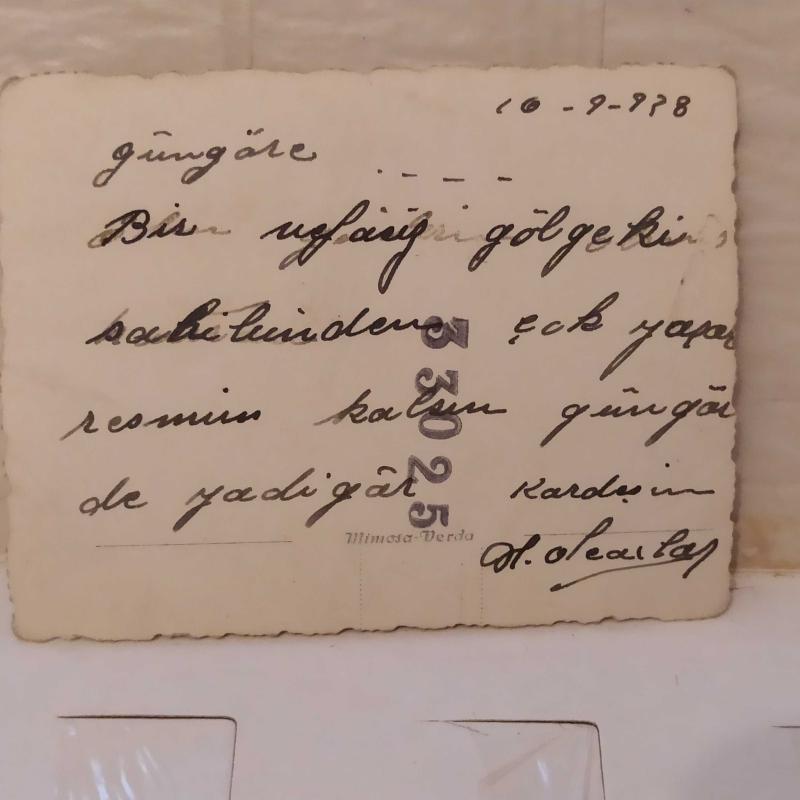 10-9-938
güngöre
Bir gölge ki
sahibinden çok yaşar
resmim kalsın güngör
de yadigâr kardeşin
33025
Mimosa-Verda